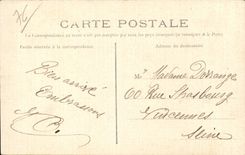 CARTE POSTALE
La Correspondance au recto n'est pas acceptée par tous les pays étrangers
Partie réservée à la correspondance
Adresse du destinataire
Bien arrivé
Embrassons
M Madame
60 Rue Strasbourg
Vincennes
Seine